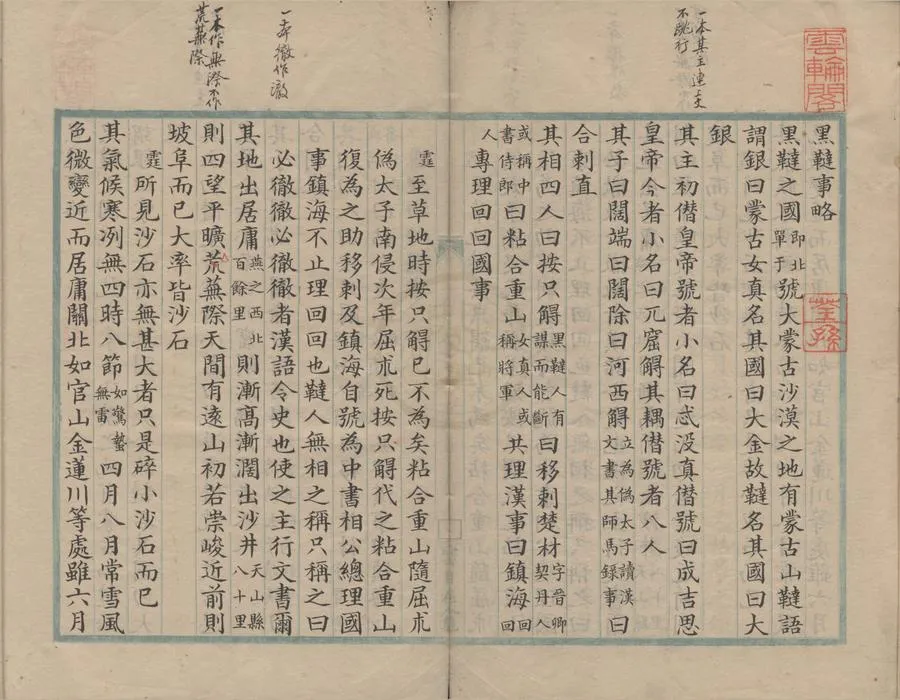 一本其主連上文
不跳行
雲輪閣
荃孫
黑韃事略
黑韃之國即北單于號大蒙古沙漠之地有蒙古山韃語
謂銀曰蒙古女真名其國曰大金故韃名其國曰大
銀
其主初僣皇帝號者小名曰忒没真僣號曰成吉思
皇帝今者小名曰兀窟䚟其耦僣號者八人
其子曰闊端曰闊除曰河西䚟立為偽太子讀漢文書其師馬録事曰
合剌直
其相四人曰按只䚟黑韃人有謀而能斷曰移剌楚材字晉卿契丹人
或稱中書侍郎曰粘合重山女真人或稱將軍共理漢事曰鎮海回回
人專理回回國事
霆至草地時按只䚟已不為矣粘合重山隨屈朮
偽太子南侵次年屈朮死按只䚟代之粘合重山
復為之助移剌及鎮海自號為中書相公總理國
事鎮海不止理回回也韃人無相之稱只稱之曰
必徹徹必徹徹者漢語令史也使之主行文書爾
其地出居庸燕之西北百餘里則漸髙漸濶出沙井天山縣八十里
則四望平曠荒蕪際天間有逺山初若崇峻近前則
坡阜而已大率皆沙石
霆所見沙石亦無甚大者只是碎小沙石而已
其氣候寒冽無四時八節如驚蟄無雷四月八月常雪風
色微變近而居庸關北如官山金蓮川等處雖六月
一本徹作澈
一本作無際不作
荒蕪際